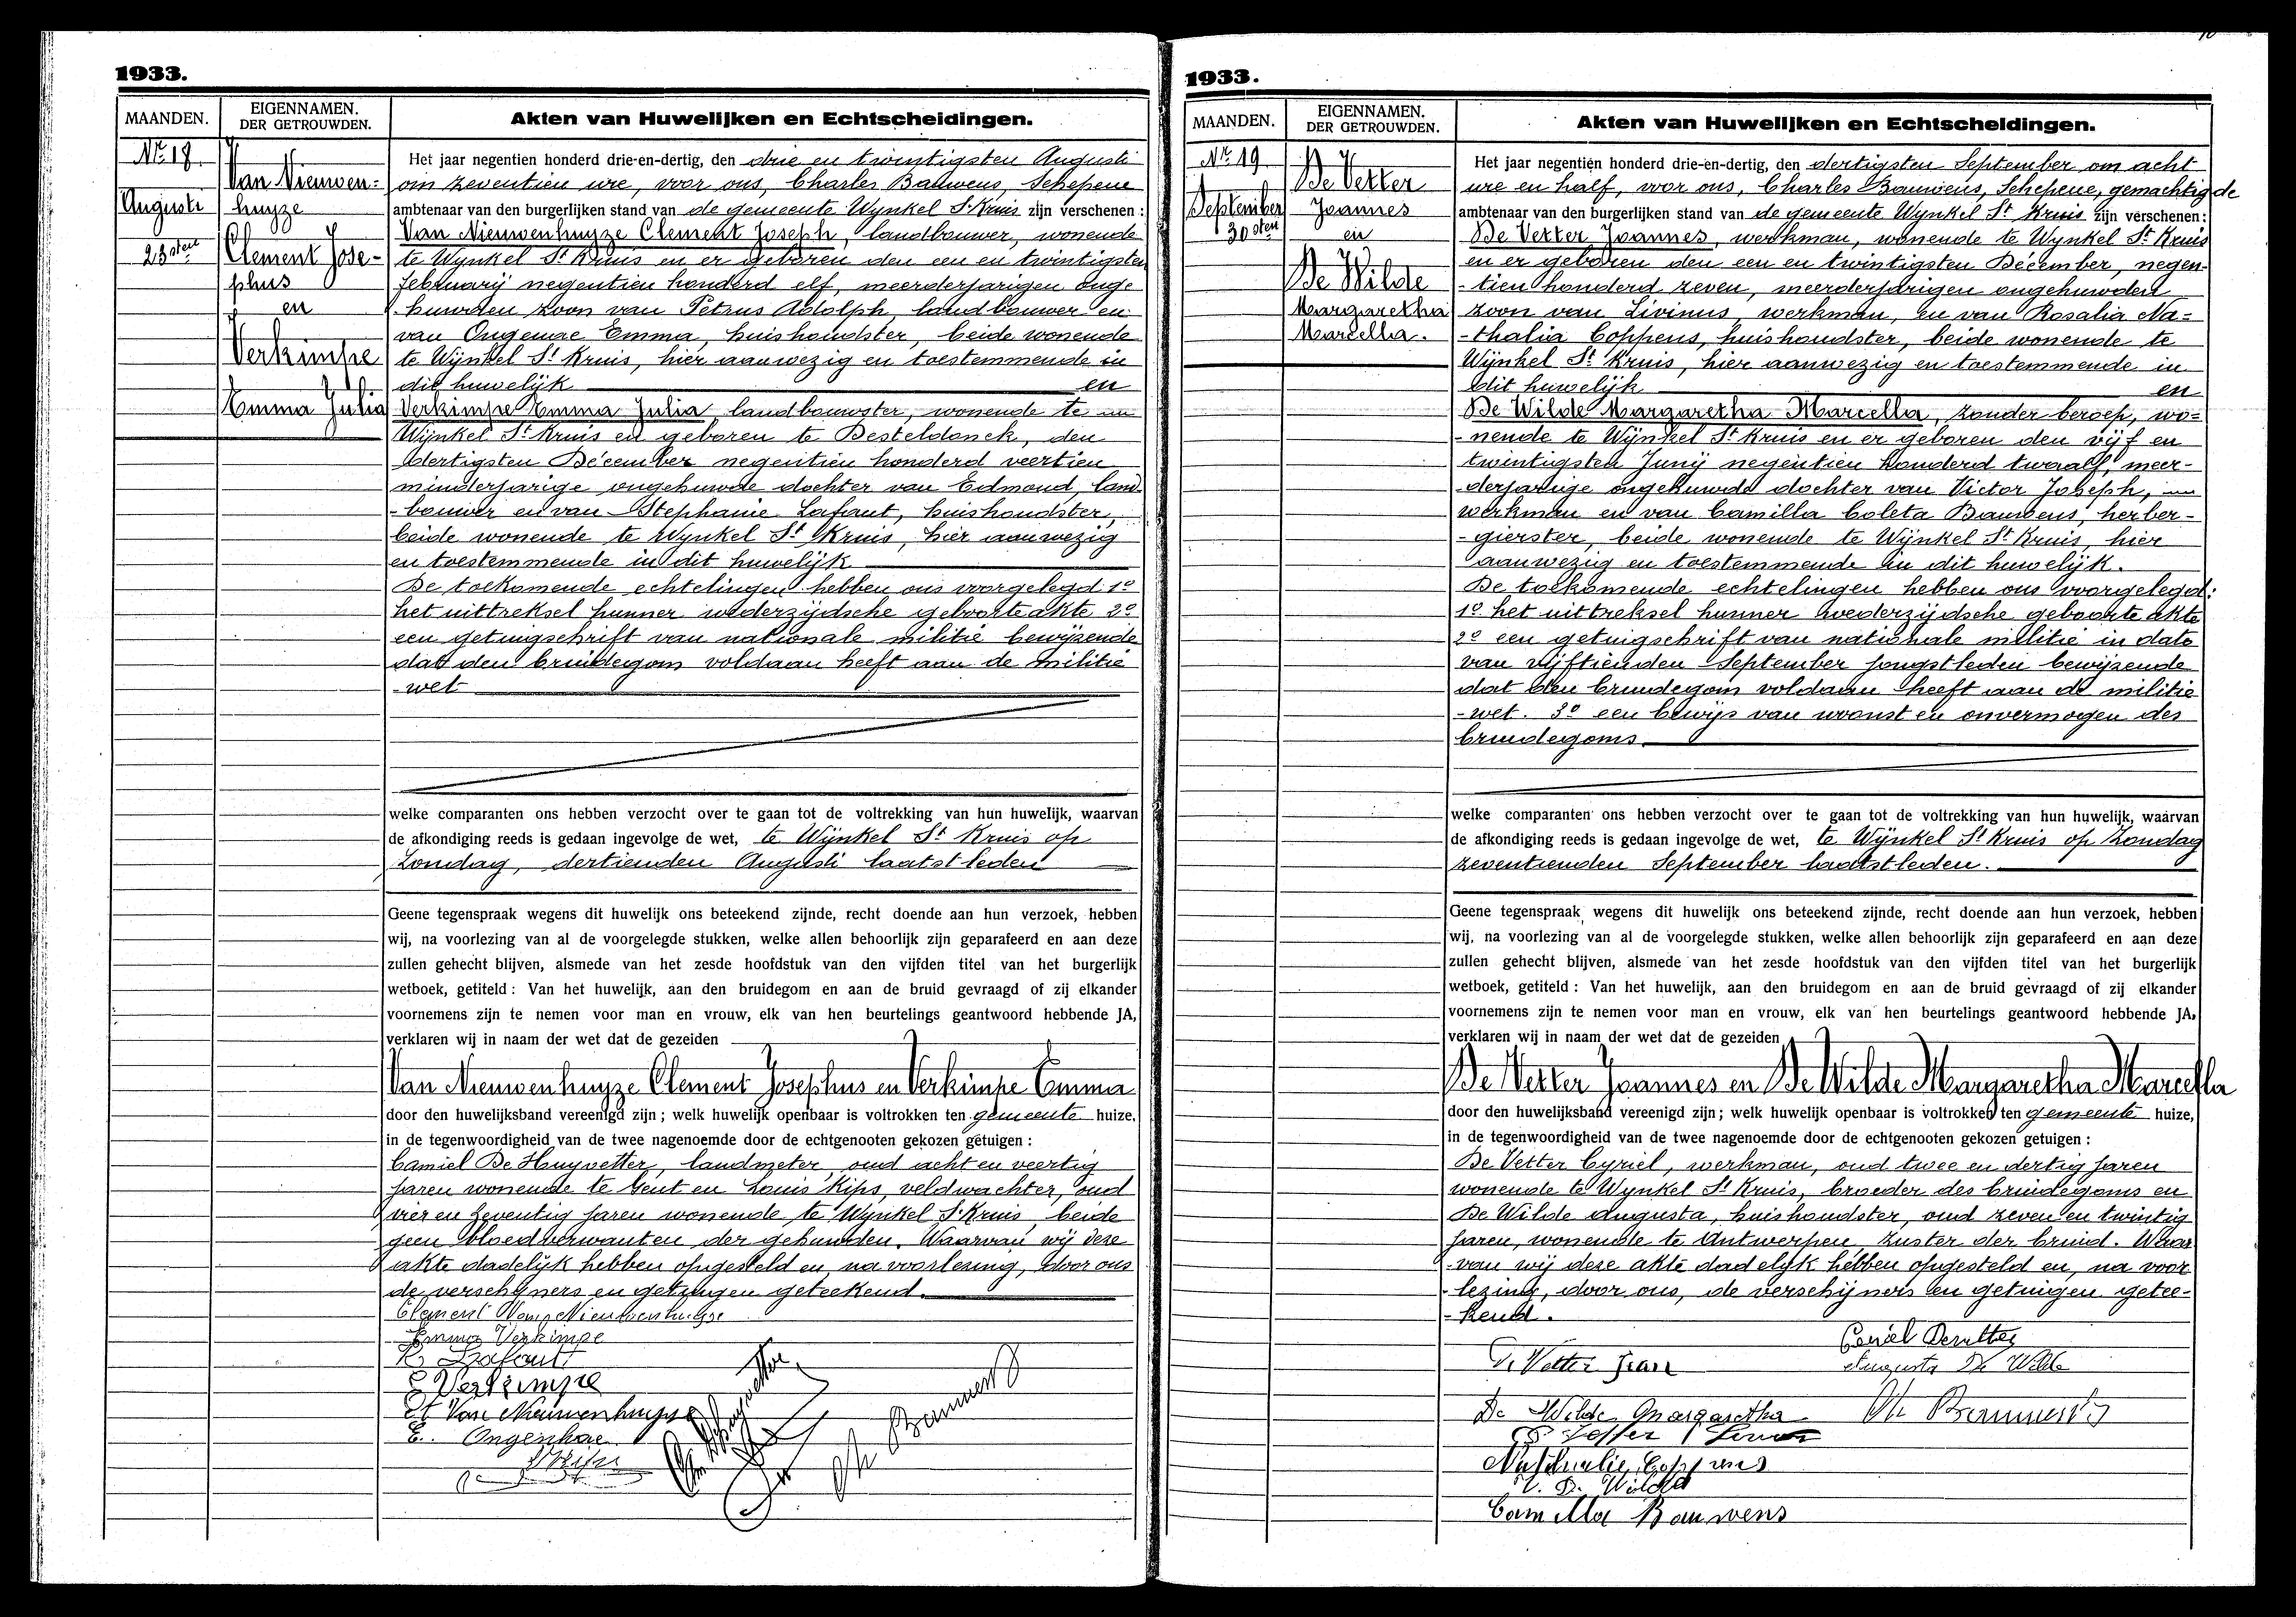 1933.
MAANDEN.
EIGENNAMEN.
DER GETROUWDEN.
Akten van Huwelijken en Echtscheidingen.
Nr. 18.
Augusti
23sten
Van Nieuwen-
huyze
Clement Jose-
phus
en
Verkimpe
Emma Julia
Het jaar negentien honderd drie-en-dertig, den drie en twintigsten Augusti
om zeventien ure, voor ons, Charles Bauwens, Schepene
ambtenaar van den burgerlijken stand van de gemeente Wynkel St Kruis zijn verschenen :
Van Nieuwenhuyze Clement Joseph, landbouwer, wonende
te Wynkel St Kruis en er geboren den een en twintigsten
februarij negentien honderd elf, meerderjarigen onge-
huwden zoon van Petrus Adolph, landbouwer en
van Ongenae Emma, huishoudster, beide wonende
te Wijnkel St Kruis, hier aanwezig en toestemmende in
dit huwelijk en
Verkimpe Emma Julia, landbouwster, wonende te
Wijnkel St Kruis en geboren te Desteldonck, den
dertigsten December negentien honderd veertien
minderjarige ongehuwde dochter van Edmond, land-
-bouwer en van Stephanie Lafaut, huishoudster,
beide wonende te Wynkel St Kruis, hier aanwezig
en toestemmende in dit huwelijk
De toekomende echtelingen hebben ons voorgelegd 1o
het uittreksel hunner wederzijdsche geboorteakte 2o
een getuigschrift van nationale militie bewijzende
dat den bruidegom voldaan heeft aan de militie
-wet
welke comparanten ons hebben verzocht over te gaan tot de voltrekking van hun huwelijk, waarvan
de afkondiging reeds is gedaan ingevolge de wet, te Wijnkel St Kruis op
Zondag, dertienden Augusti laatstleden
Geene tegenspraak wegens dit huwelijk ons beteekend zijnde, recht doende aan hun verzoek, hebben
wij, na voorlezing van al de voorgelegde stukken, welke allen behoorlijk zijn geparafeerd en aan deze
zullen gehecht blijven, alsmede van het zesde hoofdstuk van den vijfden titel van het burgerlijk
wetboek, getiteld : Van het huwelijk, aan den bruidegom en aan de bruid gevraagd of zij elkander
voornemens zijn te nemen voor man en vrouw, elk van hen beurtelings geantwoord hebbende JA,
verklaren wij in naam der wet dat de gezeiden
Van Nieuwenhuyze Clement Josephus en Verkimpe Emma
door den huwelijksband vereenigd zijn ; welk huwelijk openbaar is voltrokken ten gemeente huize,
in de tegenwoordigheid van de twee nagenoemde door de echtgenooten gekozen getuigen :
Camiel De Huyvetter, landmeter, oud acht en veertig
jaren wonende te Gent en Louis Kips, veldwachter, oud
vier en zeventig jaren wonende te Wijnkel St Kruis, beide
geen bloedverwanten der gehuwden. Waarvan wij deze
akte dadelijk hebben opgesteld en, na voorlezing, door ons
de verschijners en getuigen geteekend.
Clement Van Nieuwenhuyse
Emma Verkimpe
Lafaut
E Verkimpe
Van Nieuwenhuyse
E. Ongenhae
Bauwens
1933.
MAANDEN.
EIGENNAMEN.
DER GETROUWDEN.
Akten van Huwelijken en Echtscheidingen.
Nr. 19
September
30sten
De Vetter
Joannes
en
De Wilde
Margaretha
Marcella.
Het jaar negentien honderd drie-en-dertig, den dertigsten September om acht
ure en half, voor ons, Charles Bauwens, Schepene, gemachtigde
ambtenaar van den burgerlijken stand van de gemeente Wynkel St Kruis zijn verschenen :
De Vetter Joannes, werkman, wonende te Wynkel St Kruis
en er geboren den een en twintigsten December, negen-
-tien honderd zeven, meerderjarigen ongehuwden
zoon van Livinus, werkman, en van Rosalia Na-
-thalia Coppens, huishoudster, beide wonende te
Wijnkel St Kruis, hier aanwezig en toestemmende in
dit huwelijk en
De Wilde Margaretha Marcella, zonder beroep, wo-
-nende te Wijnkel St Kruis en er geboren den vijf en
twintigsten Junij negentien honderd twaalf, meer-
-derjarige ongehuwde dochter van Victor Joseph,
werkman en van Camilla Coleta Bauwens, herber-
-gierster, beide wonende te Wijnkel St Kruis, hier
aanwezig en toestemmende in dit huwelijk.
De toekomende echtelingen hebben ons voorgelegd:
1o het uittreksel hunner wederzijdsche geboorte akte
2o een getuigschrift van nationale militie in dato
van vijftienden September jongstleden bewijzende
dat den bruidegom voldaan heeft aan de militie
-wet. 3o een bewijs van woonst en onvermogen des
bruidegoms
welke comparanten ons hebben verzocht over te gaan tot de voltrekking van hun huwelijk, waarvan
de afkondiging reeds is gedaan ingevolge de wet, te Wijnkel St Kruis op Zondag
zeventienden September laatstleden.
Geene tegenspraak wegens dit huwelijk ons beteekend zijnde, recht doende aan hun verzoek, hebben
wij, na voorlezing van al de voorgelegde stukken, welke allen behoorlijk zijn geparafeerd en aan deze
zullen gehecht blijven, alsmede van het zesde hoofdstuk van den vijfden titel van het burgerlijk
wetboek, getiteld : Van het huwelijk, aan den bruidegom en aan de bruid gevraagd of zij elkander
voornemens zijn te nemen voor man en vrouw, elk van hen beurtelings geantwoord hebbende JA,
verklaren wij in naam der wet dat de gezeiden
De Vetter Joannes en De Wilde Margaretha Marcella
door den huwelijksband vereenigd zijn ; welk huwelijk openbaar is voltrokken ten gemeente huize,
in de tegenwoordigheid van de twee nagenoemde door de echtgenooten gekozen getuigen :
De Vetter Cyriel, werkman, oud twee en dertig jaren
wonende te Wynkel St Kruis, broeder des bruidegoms en
De Wilde Augusta, huishoudster, oud zeven en twintig
jaren, wonende te Antwerpen zuster der bruid. Waar
-van wij deze akte dadelyk hebben opgesteld en, na voor
-lezing, door ons, de verschijners en getuigen getee-
-kend.
De Vetter Jean
Augusta De Wilde
De Wilde Margaretha
Ch Bauwens
Nathalie Coppens
V. De Wilde
Camilla Bauwens